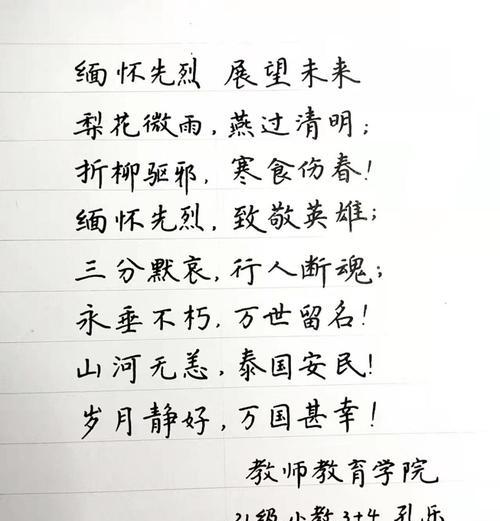 缅怀先烈 展望未来
梨花微雨,燕过清明;
折柳驱邪,寒食伤春!
缅怀先烈,致敬英雄;
三分默哀,行人断魂;
永垂不朽,万世留名!
山河无恙,泰国安民!
岁月静好,万国甚幸!
教师教育学院
21级小教3+4 孔乐